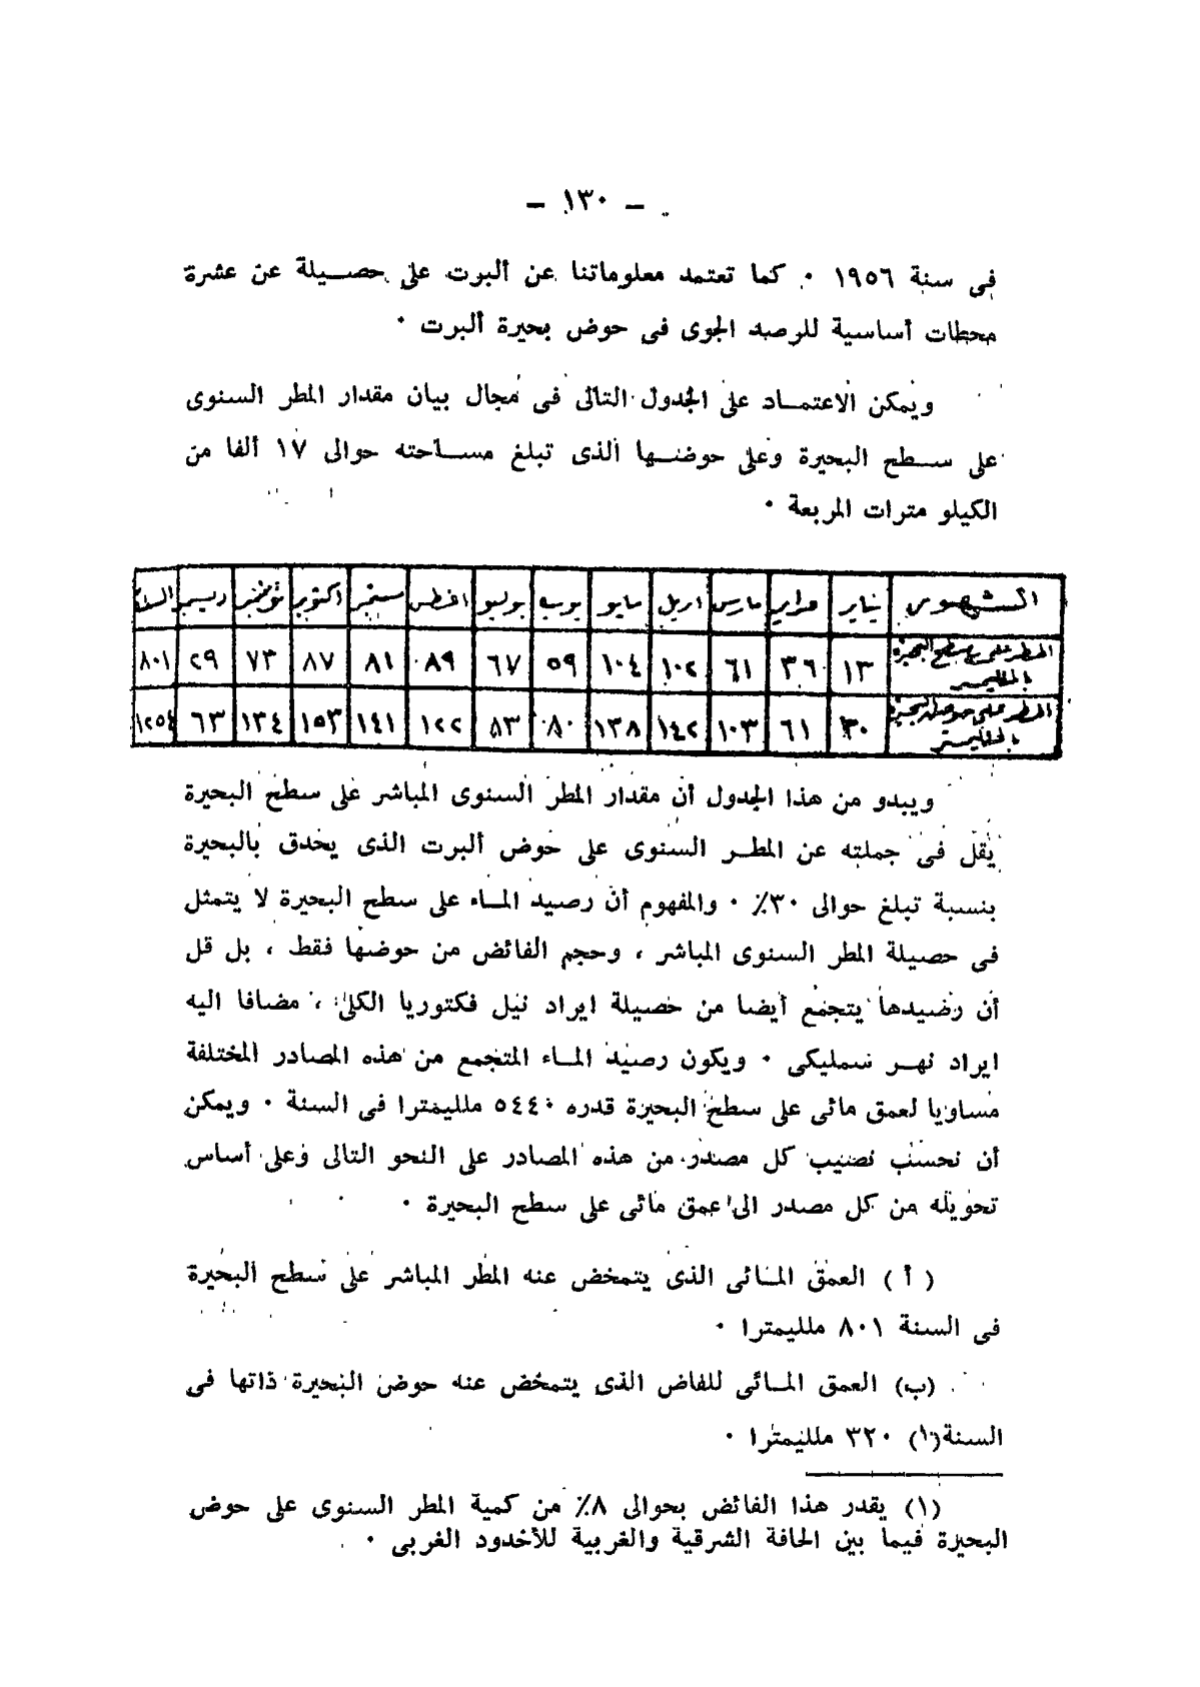 — ١٣٠ —
فى سنة ١٩٥٦ ٠ كما تعتمد معلوماتنا عن ألبرت على حصيلة عن عشرة
محطات أساسية للرصد الجوى فى حوض بحيرة ألبرت ٠
ويمكن الاعتماد على الجدول التالى فى مجال بيان مقدار المطر السنوى
على سطح البحيرة وعلى حوضها الذى تبلغ مساحته حوالى ١٧ ألفا من
الكيلو مترات المربعة ٠
الشهور يناير فبراير مارس ابريل مايو يونيه يوليو اغسطس سبتمبر اكتوبر نوفمبر ديسمبر السنة
المطر على سطح البحيرة بالملليمتر ١٣ ٣٦ ٦١ ١٠٢ ١٠٤ ٥٩ ٦٧ ٨٩ ٨١ ٨٧ ٧٣ ٢٩ ٨٠١
المطر على حوض البحيرة بالملليمتر ٣٠ ٦١ ١٠٣ ١٤٢ ١٣٨ ٨٠ ٨٣ ١٢٢ ١٤١ ١٥٣ ١٣٤ ٦٣ ١٢٥٤
ويبدو من هذا الجدول أن مقدار المطر السنوى المباشر على سطح البحيرة
يقل فى جملته عن المطر السنوى على حوض ألبرت الذى يحدق بالبحيرة
بنسبة تبلغ حوالى ٣٠٪ ٠ والمفهوم أن رصيد الماء على سطح البحيرة لا يتمثل
فى حصيلة المطر السنوى المباشر ، وحجم الفائض من حوضها فقط ، بل قل
أن رصيدها يتجمع أيضا من حصيلة ايراد نيل فكتوريا الكلى ، مضافا اليه
ايراد نهر سمليكى ٠ ويكون رصيد الماء المتجمع من هذه المصادر المختلفة
مساويا لعمق مائى على سطح البحيرة قدره ٥٤٤٠ ملليمترا فى السنة ٠ ويمكن
أن نحسب نصيب كل مصدر من هذه المصادر على النحو التالى وعلى أساس
تحويله من كل مصدر الى عمق مائى على سطح البحيرة ٠
( أ ) العمق المائى الذى يتمخض عنه المطر المباشر على سطح البحيرة
فى السنة ٨٠١ ملليمترا ٠
(ب) العمق المائى للفاض الذى يتمخض عنه حوض البحيرة ذاتها فى
السنة(١) ٣٢٠ ملليمترا ٠
(١) يقدر هذا الفائض بحوالى ٨٪ من كمية المطر السنوى على حوض
البحيرة فيما بين الحافة الشرقية والغربية للأخدود الغربى ٠